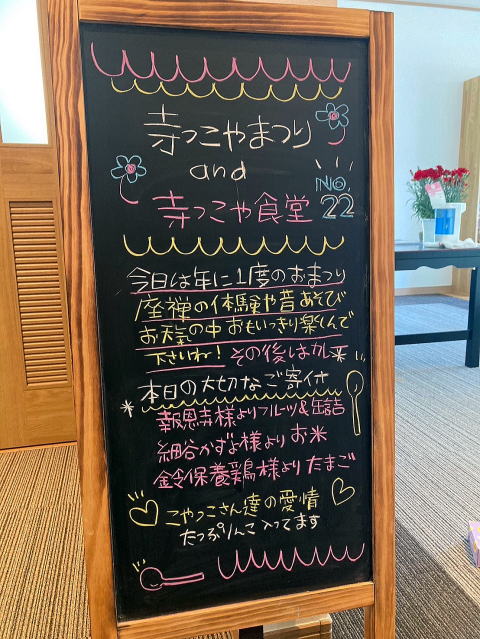 寺っこやまつり
and
寺っこや食堂
NO.22
今日は年に1度のおまつり
座禅の体験や昔あそび
お天気の中おもいっきり楽しんで
下さいね！その後はカレー
本日の大切なご寄付
報恩寺様よりフルーツ&缶詰
細谷かずよ様よりお米
鈴保養鶏様よりたまご
こやっこさん達の愛情
たっぷりんこ入ってます